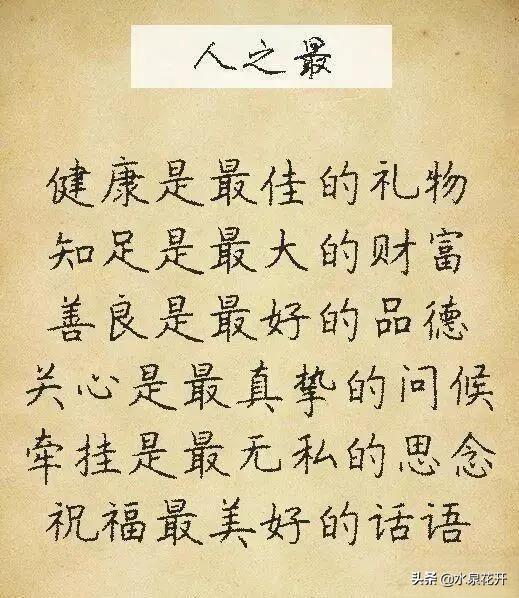 人之最
健康是最佳的礼物
知足是最大的财富
善良是最好的品德
关心是最真挚的问候
牵挂是最无私的思念
祝福最美好的话语
头条 @水泉花开